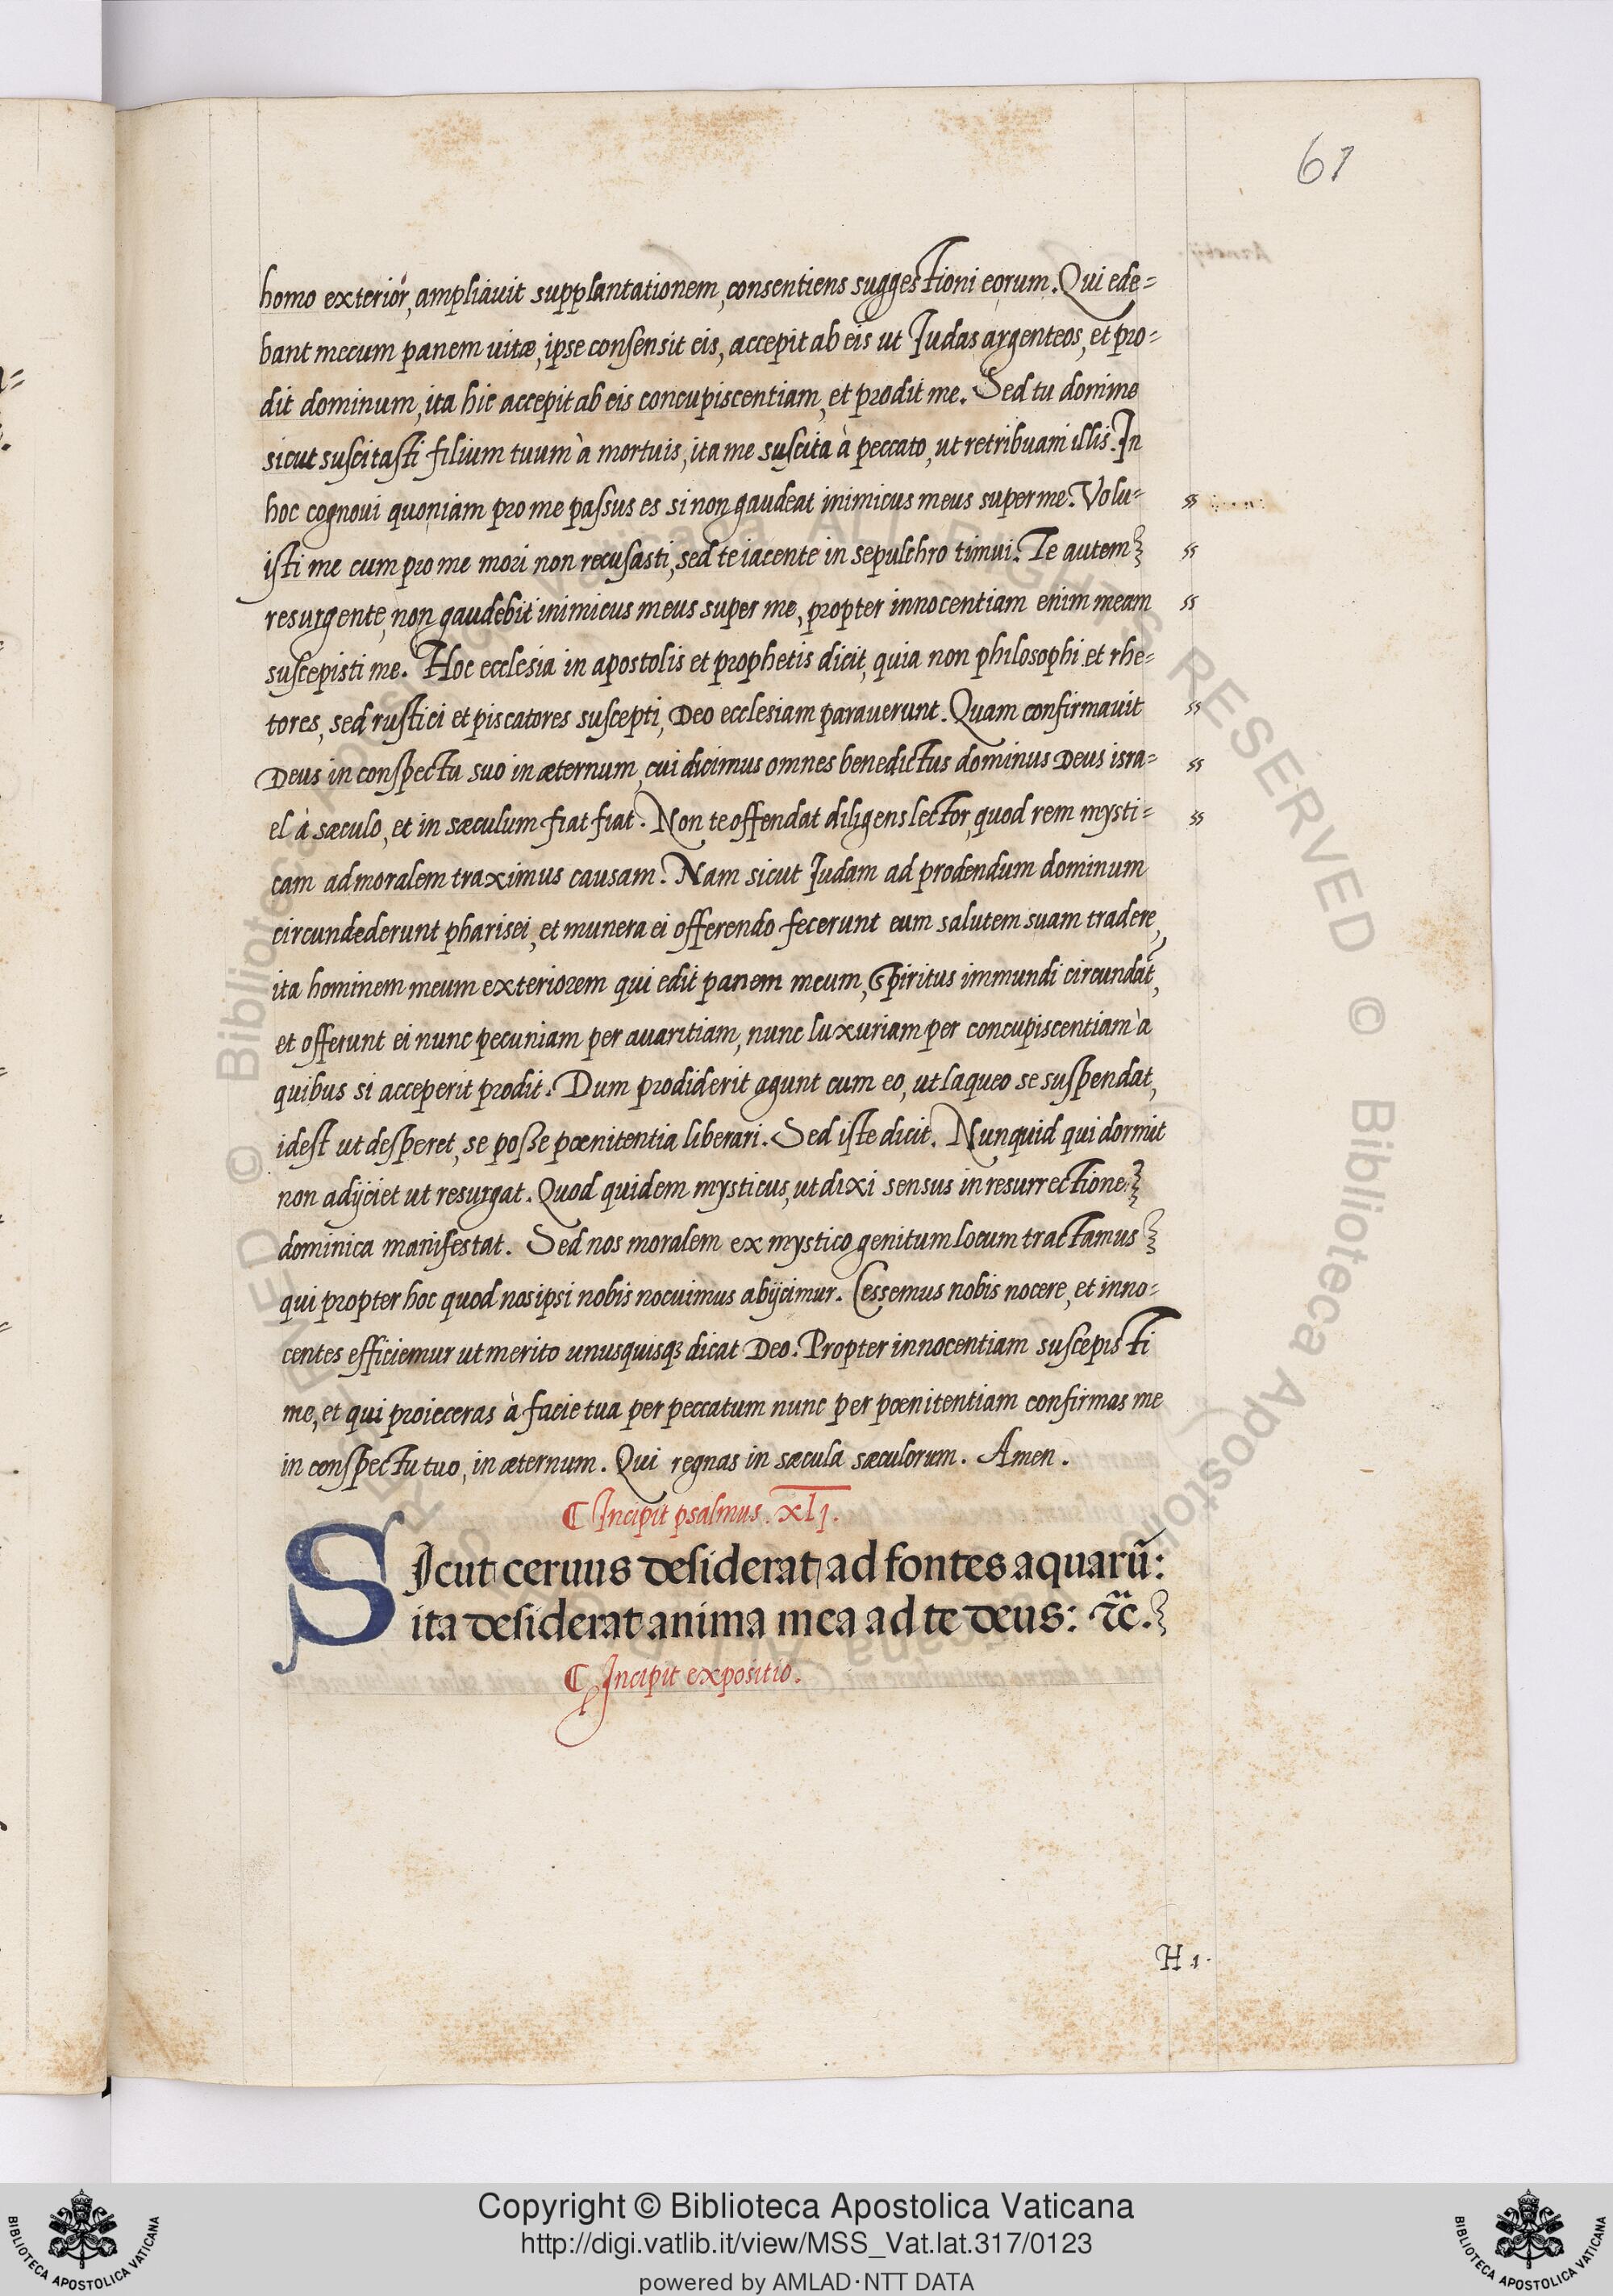 61
homo exterior, ampliauit supplantationem, consentiens suggestioni eorum. Qui ede=
bant mecum panem uitæ, ipse consensit eis, accepit ab eis ut Judas argenteos, et pro=
dit dominum, ita hic accepit ab eis concupiscentiam, et prodit me. Sed tu domine
sicut suscitasti filium tuum à mortuis, ita me suscita à peccato, ut retribuam illis. In
hoc cognoui quoniam pro me passus es si non gaudeat inimicus meus super me. Volu=
isti me cum pro me mori non recusasti, sed te iacente in sepulchro timui. Te autem
resurgente, non gaudebit inimicus meus super me, propter innocentiam enim meam
suscepisti me. Hoc ecclesia in apostolis et prophetis dicit, quia non philosophi et rhe=
tores, sed rustici et piscatores suscepti, Deo ecclesiam parauerunt. Quam confirmauit
Deus in conspectu suo in æternum, cui dicimus omnes benedictus dominus Deus isra=
el à sæculo, et in sæculum fiat fiat. Non te offendat diligens lector, quod rem mysti=
cam ad moralem traximus causam. Nam sicut Judam ad prodendum dominum
circundederunt pharisei, et munera ei offerendo fecerunt eum salutem suam tradere,
ita hominem meum exteriorem qui edit panem meum, Spiritus immundi circundāt,
et offerunt ei nunc pecuniam per auaritiam, nunc luxuriam per concupiscentiam à
quibus si acceperit prodit. Dum prodiderit agunt cum eo, ut laqueo se suspendat,
idest ut desperet, se posse pœnitentia liberari. Sed iste dicit. Nunquid qui dormit
non adijciet ut resurgat. Quod quidem mysticus, ut dixi sensus in resurrectione
dominica manifestat. Sed nos moralem ex mystico genitum locum tractamus
qui propter hoc quod nosipsi nobis nocuimus abijcimur. Cessemus nobis nocere, et inno=
centes efficiemur ut merito unusquisq; dicat Deo. Propter innocentiam suscepisti
me, et qui proieceras à facie tua per peccatum nunc per pœnitentiam confirmas me
in conspectu tuo, in æternum. Qui regnas in sæcula sæculorum. Amen.
¶ Incipit psalmus. xlj.
SIcut ceruus desiderat ad fontes aquarū:
ita desiderat anima mea ad te deus: ⁊c̃.
¶ Incipit expositio.
H 1.
Copyright © Biblioteca Apostolica Vaticana
http://digi.vatlib.it/view/MSS_Vat.lat.317/0123
powered by AMLAD·NTT DATA
BIBLIOTECA APOSTOLICA VATICANA
BIBLIOTECA APOSTOLICA VATICANA